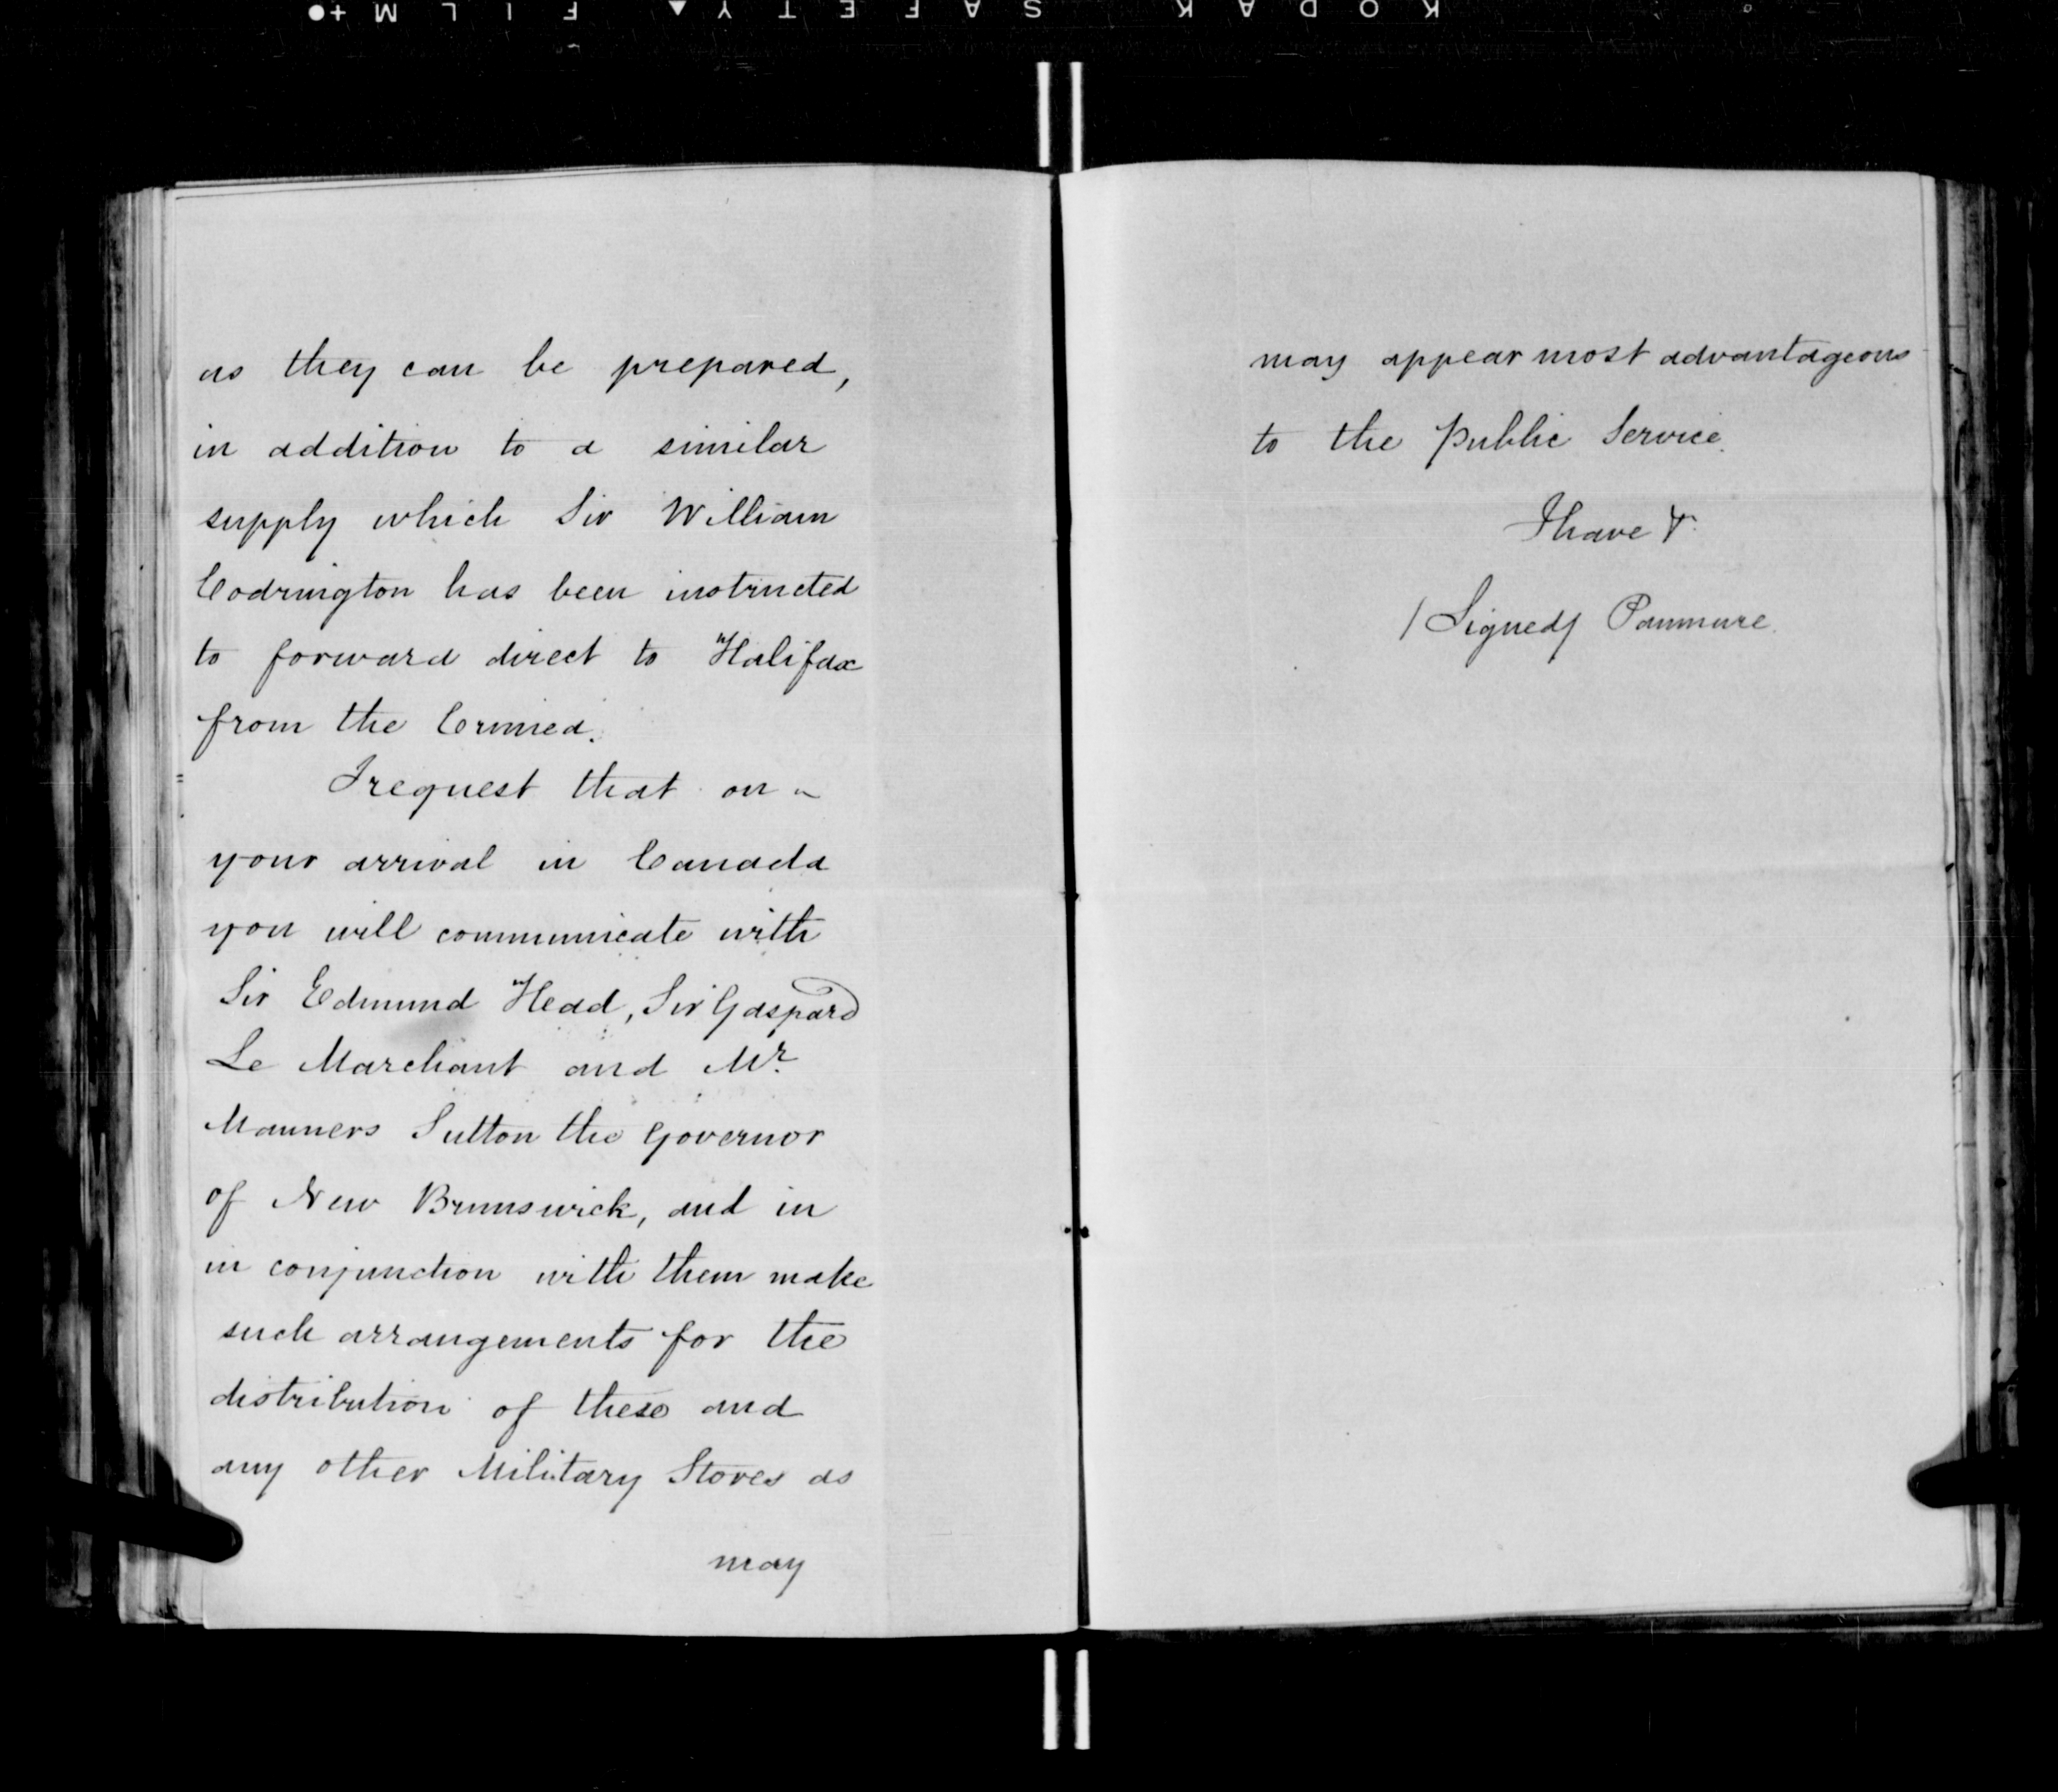 KODAK SAFETY ▲ FILM +●
as they can be prepared,
in addition to a similar
supply which Sir William
Codrington has been instructed
to forward direct to Halifax
from the Crimea.
I request that on
your arrival in Canada
you will communicate with
Sir Edmund Head, Sir Gaspard
Le Marchant and Mr.
Manners Sutton the Governor
of New Brunswick, and in
in conjunction with them make
such arrangements for the
distribution of these and
any other Military Stores as
may
may appear most advantageous
to the Public Service.
I have &.
/Signed/ Panmure.